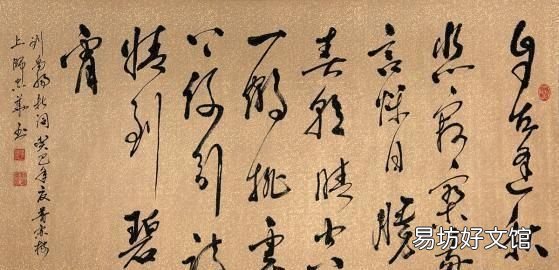 自古逢秋
悲寂寥我
言秋日勝
春朝晴空
一鹤排雲
上便引诗
情到碧
霄
刘禹锡秋词 癸巳年夏
易坊好文馆